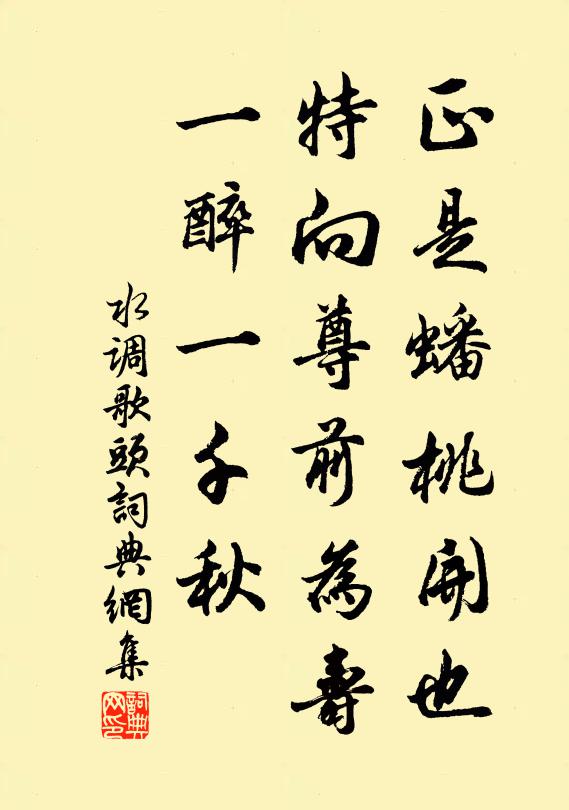 正是蟠桃開也
特向尊前為壽
一醉一千秋
水调歌頭詞典網集
詞典网印